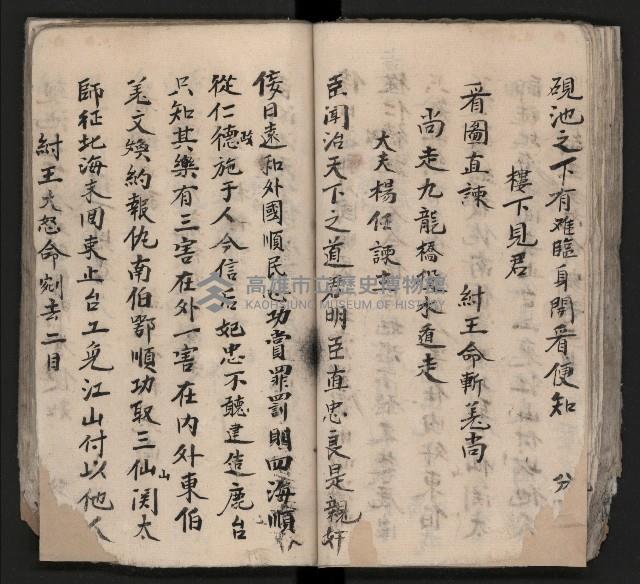 硯池之下有难臨身開看便知
分
樓下見君
看圖直諫　紂王命斬羌尚
尚走九龍橋投水道走
大夫楊任諫
臣闻治天下之道君明臣直忠良是親奸
侫日遠和外國順民心功賞罪罰則四海順
從仁德政施于人今信后妃忠不聽建造鹿台
只知其樂有三害在外一害在内外東伯
羌文焕約報仇南伯鄂順功取三仙山関太
師征北海未回東止台工免江山付以他人
紂王大怒命剜去二目
高雄市立歷史博物館
KAOHSIUNG MUSEUM OF HISTORY